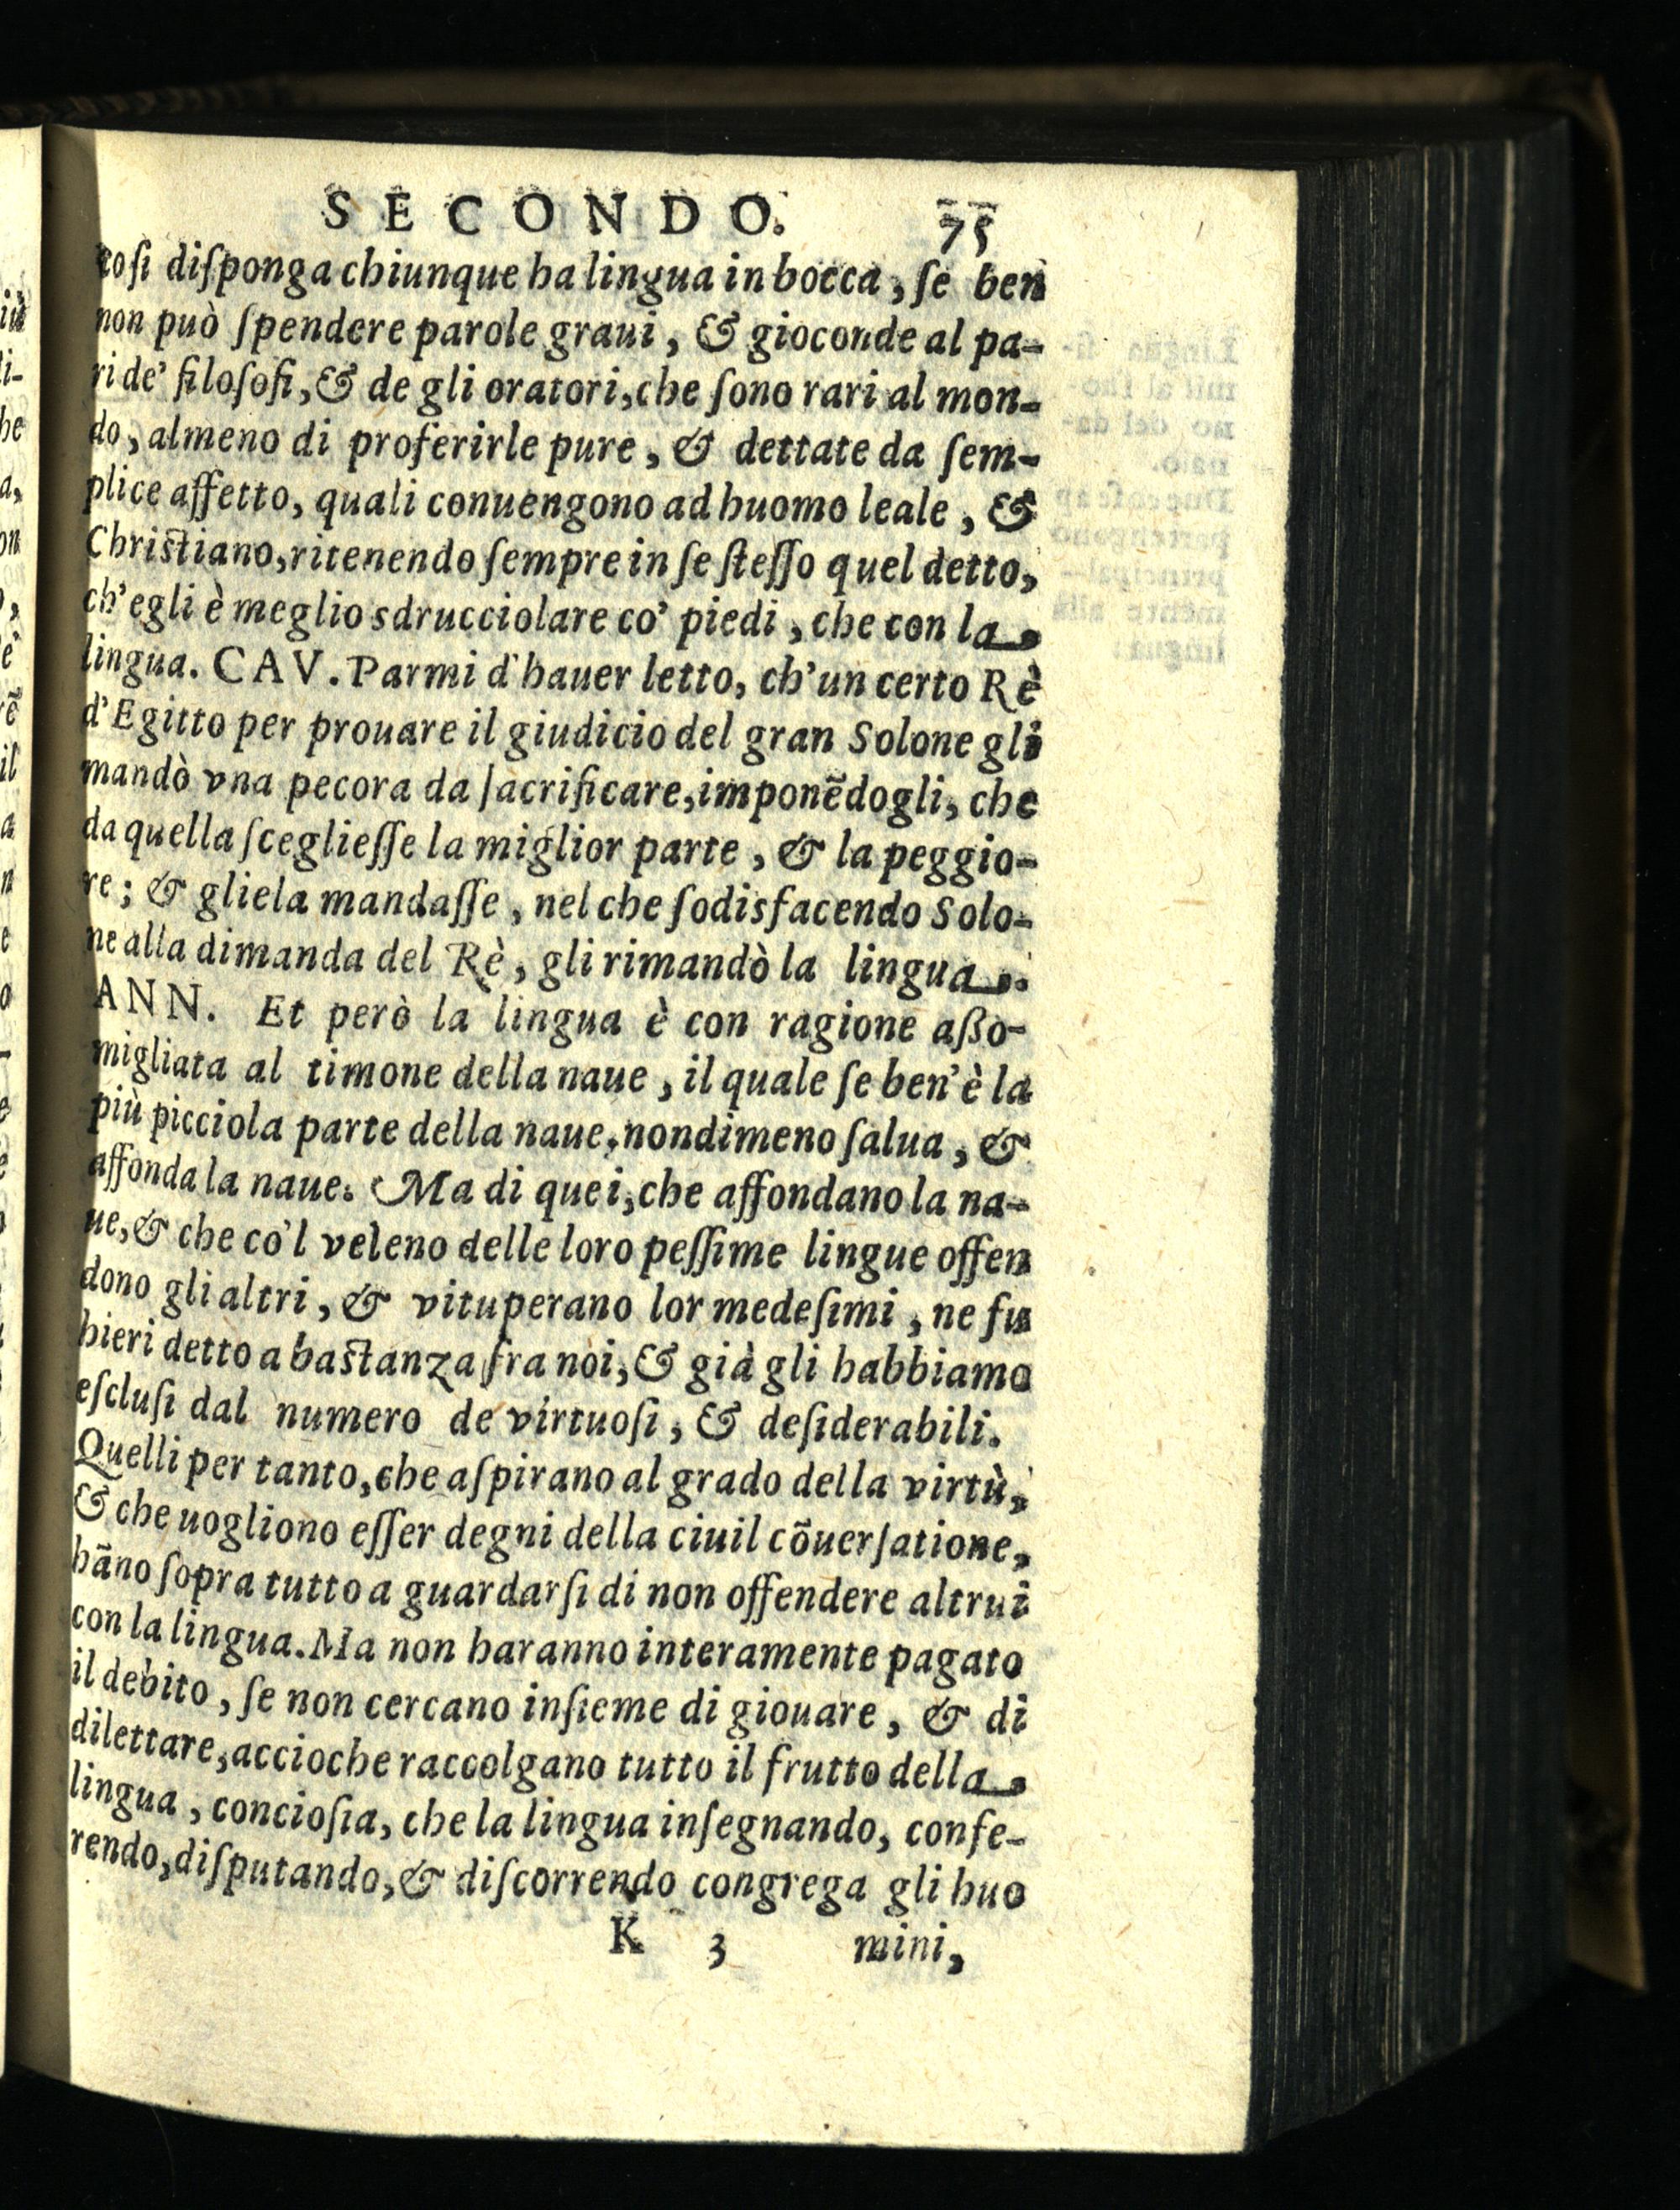 SECONDO. 75
cosi disponga chiunque ha lingua in bocca, se ben
non può spendere parole graui, & gioconde al pa-
ri de' filosofi, & de gli oratori, che sono rari al mon-
do, almeno di proferirle pure, & dettate da sem-
plice affetto, quali conuengono ad huomo leale, &
Christiano, ritenendo sempre in se stesso quel detto,
ch'egli è meglio sdrucciolare co' piedi, che con la
lingua. CAV. Parmi d'hauer letto, ch'un certo Rè
d'Egitto per prouare il giudicio del gran Solone gli
mandò vna pecora da sacrificare, imponẽdogli, che
da quella scegliesse la miglior parte, & la peggio-
re; & gliela mandasse, nel che sodisfacendo Solo-
ne alla dimanda del Rè, gli rimandò la lingua.
ANN. Et però la lingua è con ragione aßo-
migliata al timone della naue, il quale se ben' è la
più picciola parte della naue, nondimeno salua, &
affonda la naue. Ma di quei, che affondano la na-
ue, & che co'l veleno delle loro pessime lingue offen
dono gli altri, & vituperano lor medesimi, ne fu
hieri detto a bastanza fra noi, & già gli habbiamo
esclusi dal numero de virtuosi, & desiderabili.
Quelli per tanto, che aspirano al grado della virtù,
& che uogliono esser degni della ciuil cõuersatione,
hãno sopra tutto a guardarsi di non offendere altrui
con la lingua. Ma non haranno interamente pagato
il debito, se non cercano insieme di giouare, & di
dilettare, accioche raccolgano tutto il frutto della
lingua, conciosia, che la lingua insegnando, confe-
rendo, disputando, & discorrendo congrega gli huo
K 3 mini,